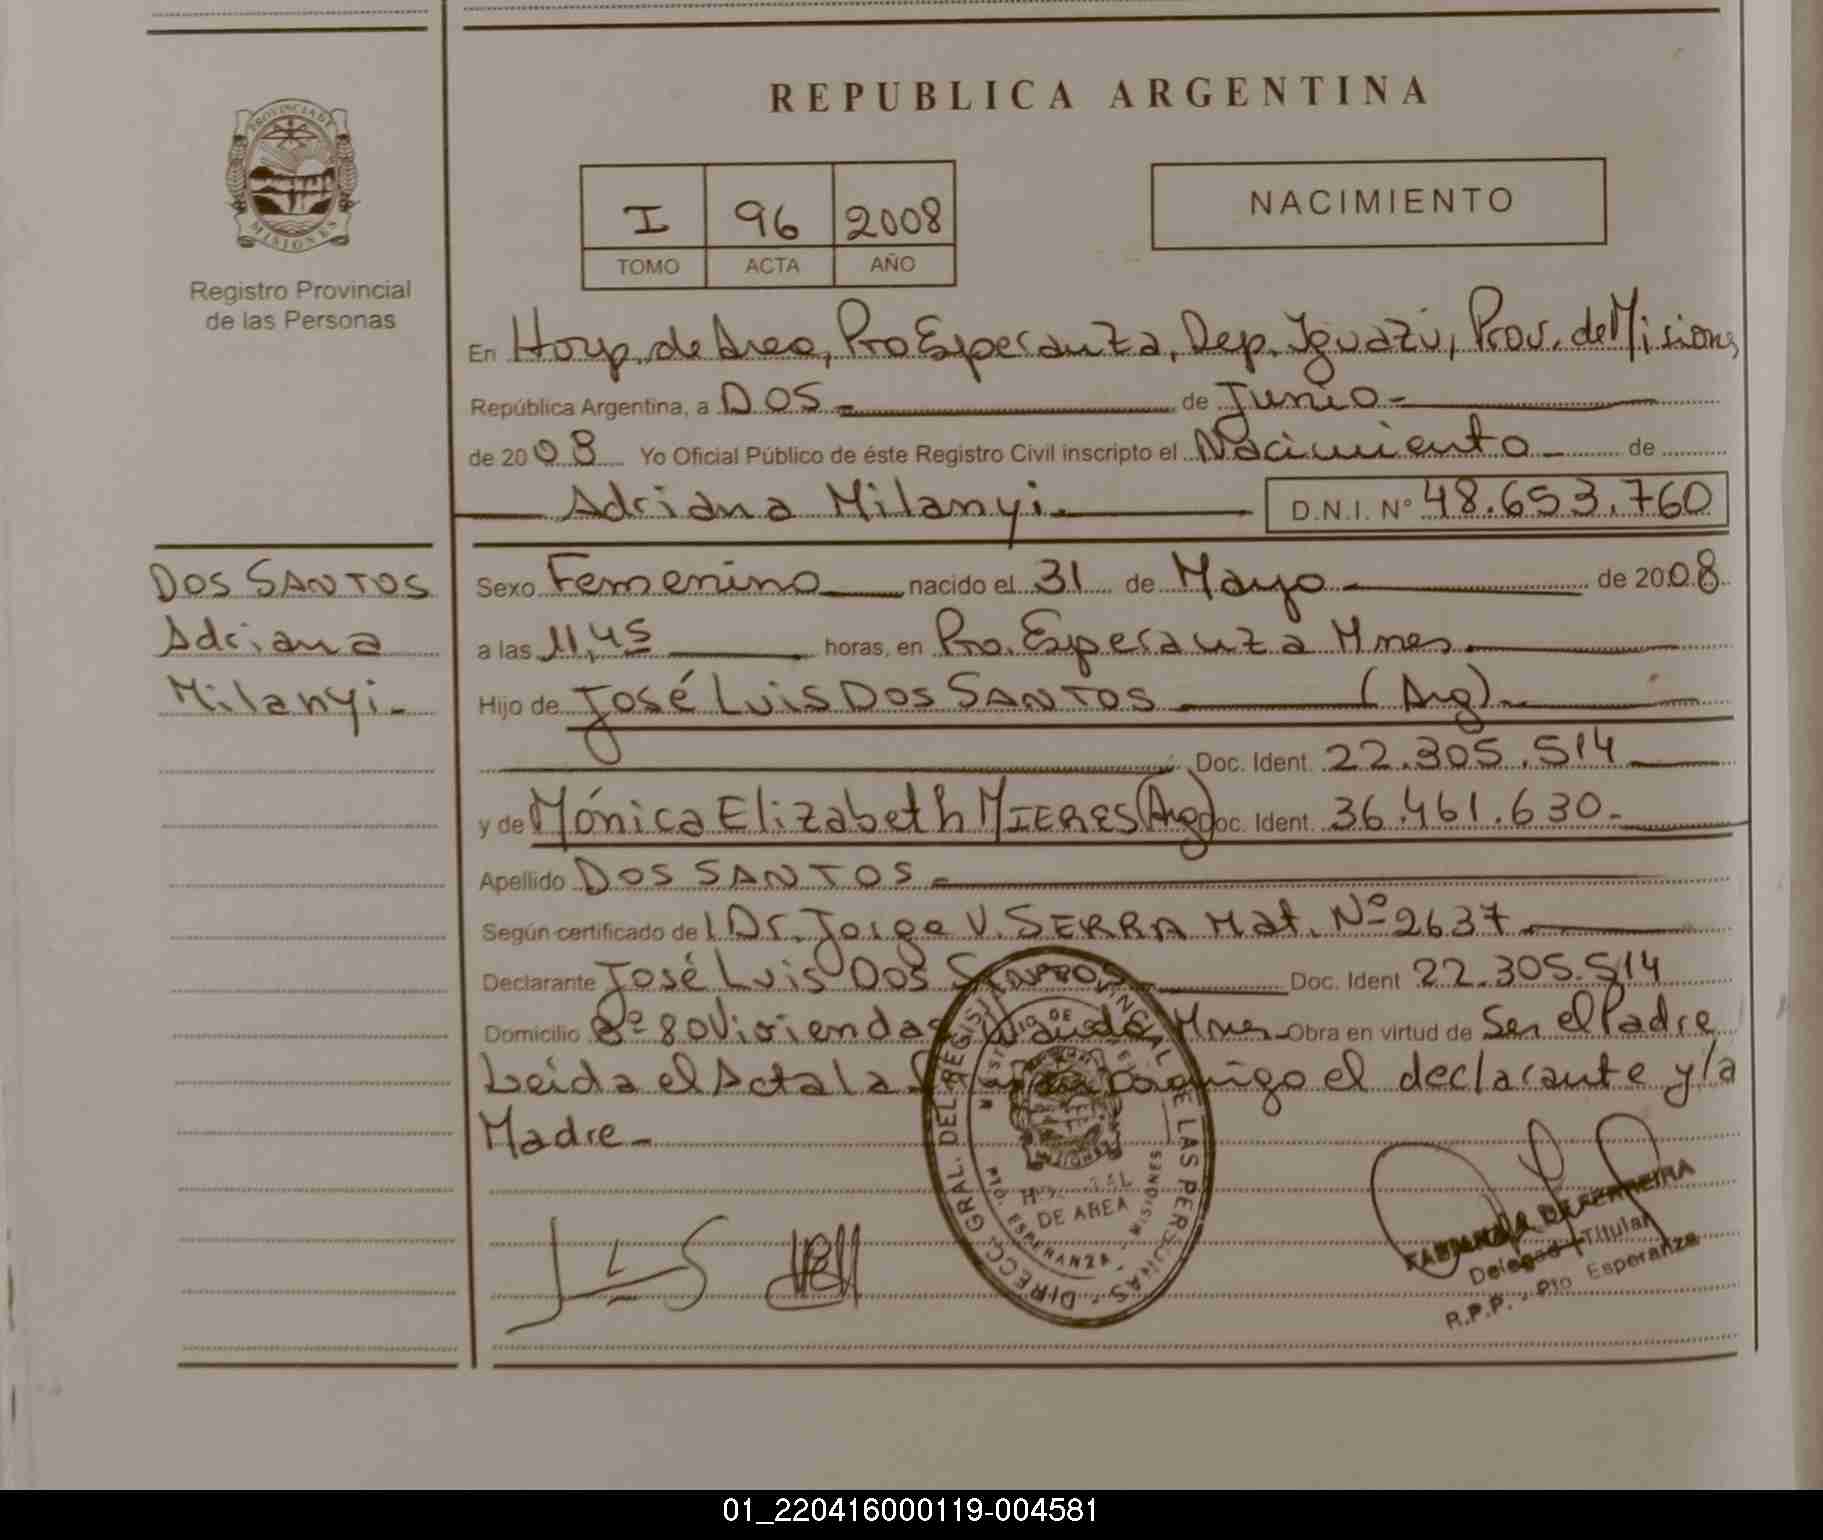 REPUBLICA ARGENTINA
PROVINCIA DE
MISIONES
Registro Provincial
de las Personas
I 96 2008
TOMO ACTA AÑO
NACIMIENTO
En Hosp. de Area, Pto Esperanza, Dep. Iguazú, Prov. de Misiones
República Argentina, a DOS de Junio
de 2008 Yo Oficial Público de éste Registro Civil inscripto el Nacimiento de
Adriana Milanyi D.N.I. Nº 48.653.760
DOS SANTOS
Adriana
Milanyi
Sexo Femenino nacido el 31 de Mayo de 2008
a las 11,45 horas, en Pto. Esperanza Mnes
Hijo de José Luis DOS SANTOS (Arg)
Doc. Ident. 22.305.514
y de Mónica Elizabeth MIERES (Arg) Doc. Ident. 36.461.630
Apellido DOS SANTOS
Según certificado de Dr. Jorge V. SERRA Mat. Nº 2637
Declarante José Luis DOS SANTOS Doc. Ident 22.305.514
Domicilio Bº 80 Viviendas Wanda Mnes Obra en virtud de Ser el Padre
Leída el Acta la conmigo el declarante y la
Madre
DIRECC. GRAL. DEL REGISTRO PROVINCIAL DE LAS PERSONAS
HOSPITAL
DE AREA
PTO. ESPERANZA - MISIONES
FERREIRA
Titular
R.P.P. - Pto Esperanza
01_220416000119-004581